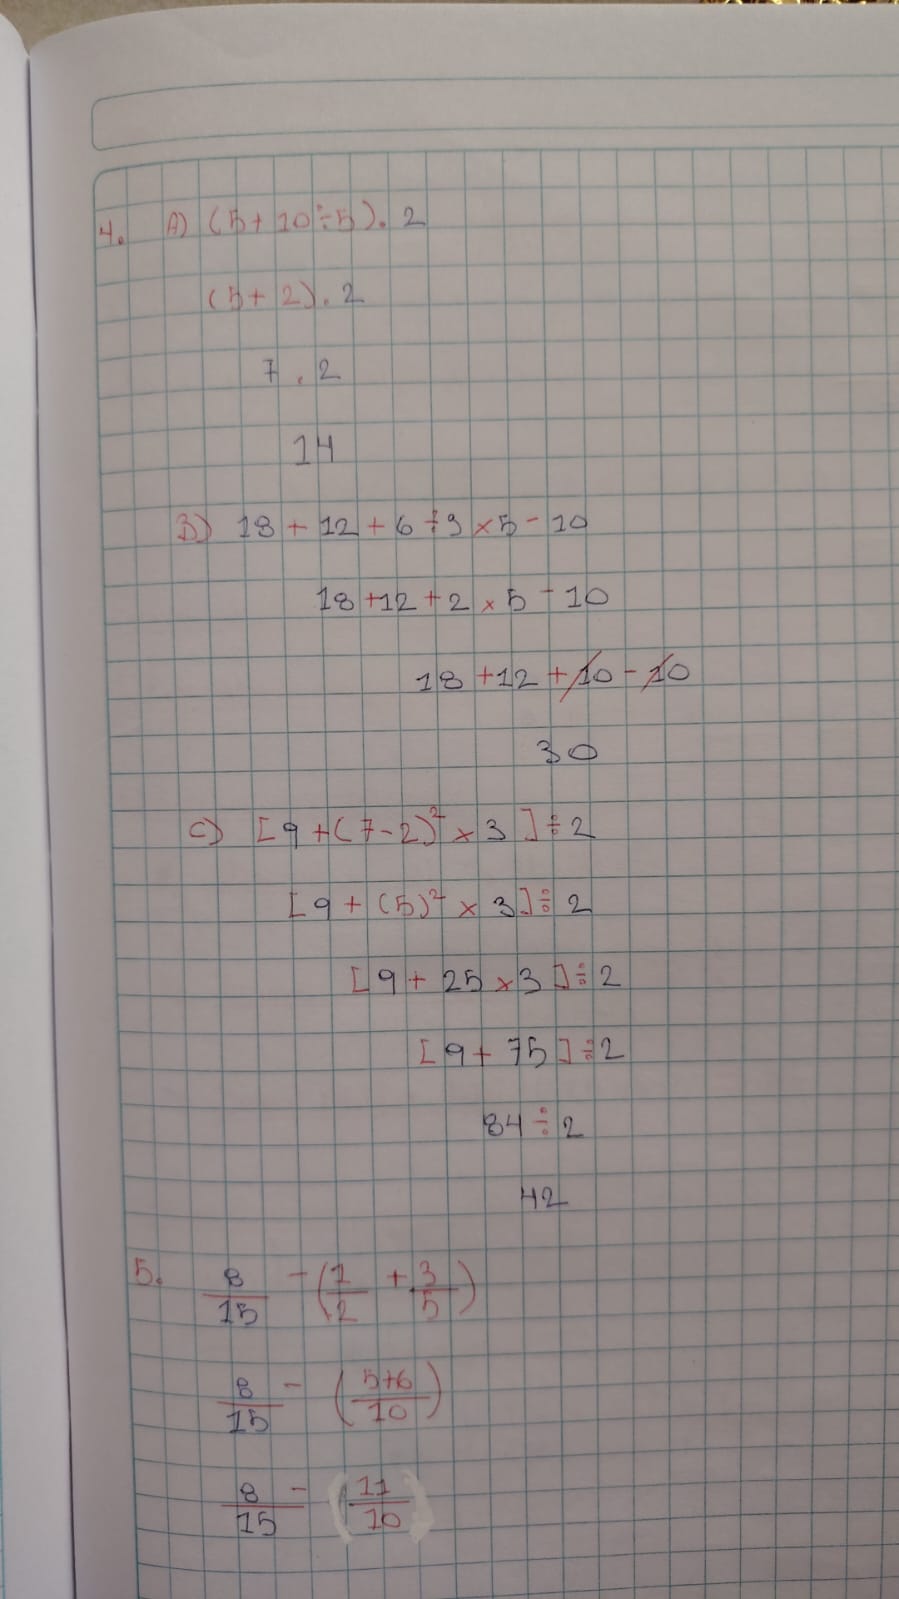 4. A) (5+10÷5).2
(5+2).2
7.2
14
B) 18+12+6÷3×5-10
18+12+2×5-10
18+12+10-10
30
C) [9+(7-2)²×3]÷2
[9+(5)²×3]÷2
[9+25×3]÷2
[9+75]÷2
84÷2
42
5. 8/15 - (1/2 + 3/5)
8/15 - (5+6/10)
8/15 - (11/10)